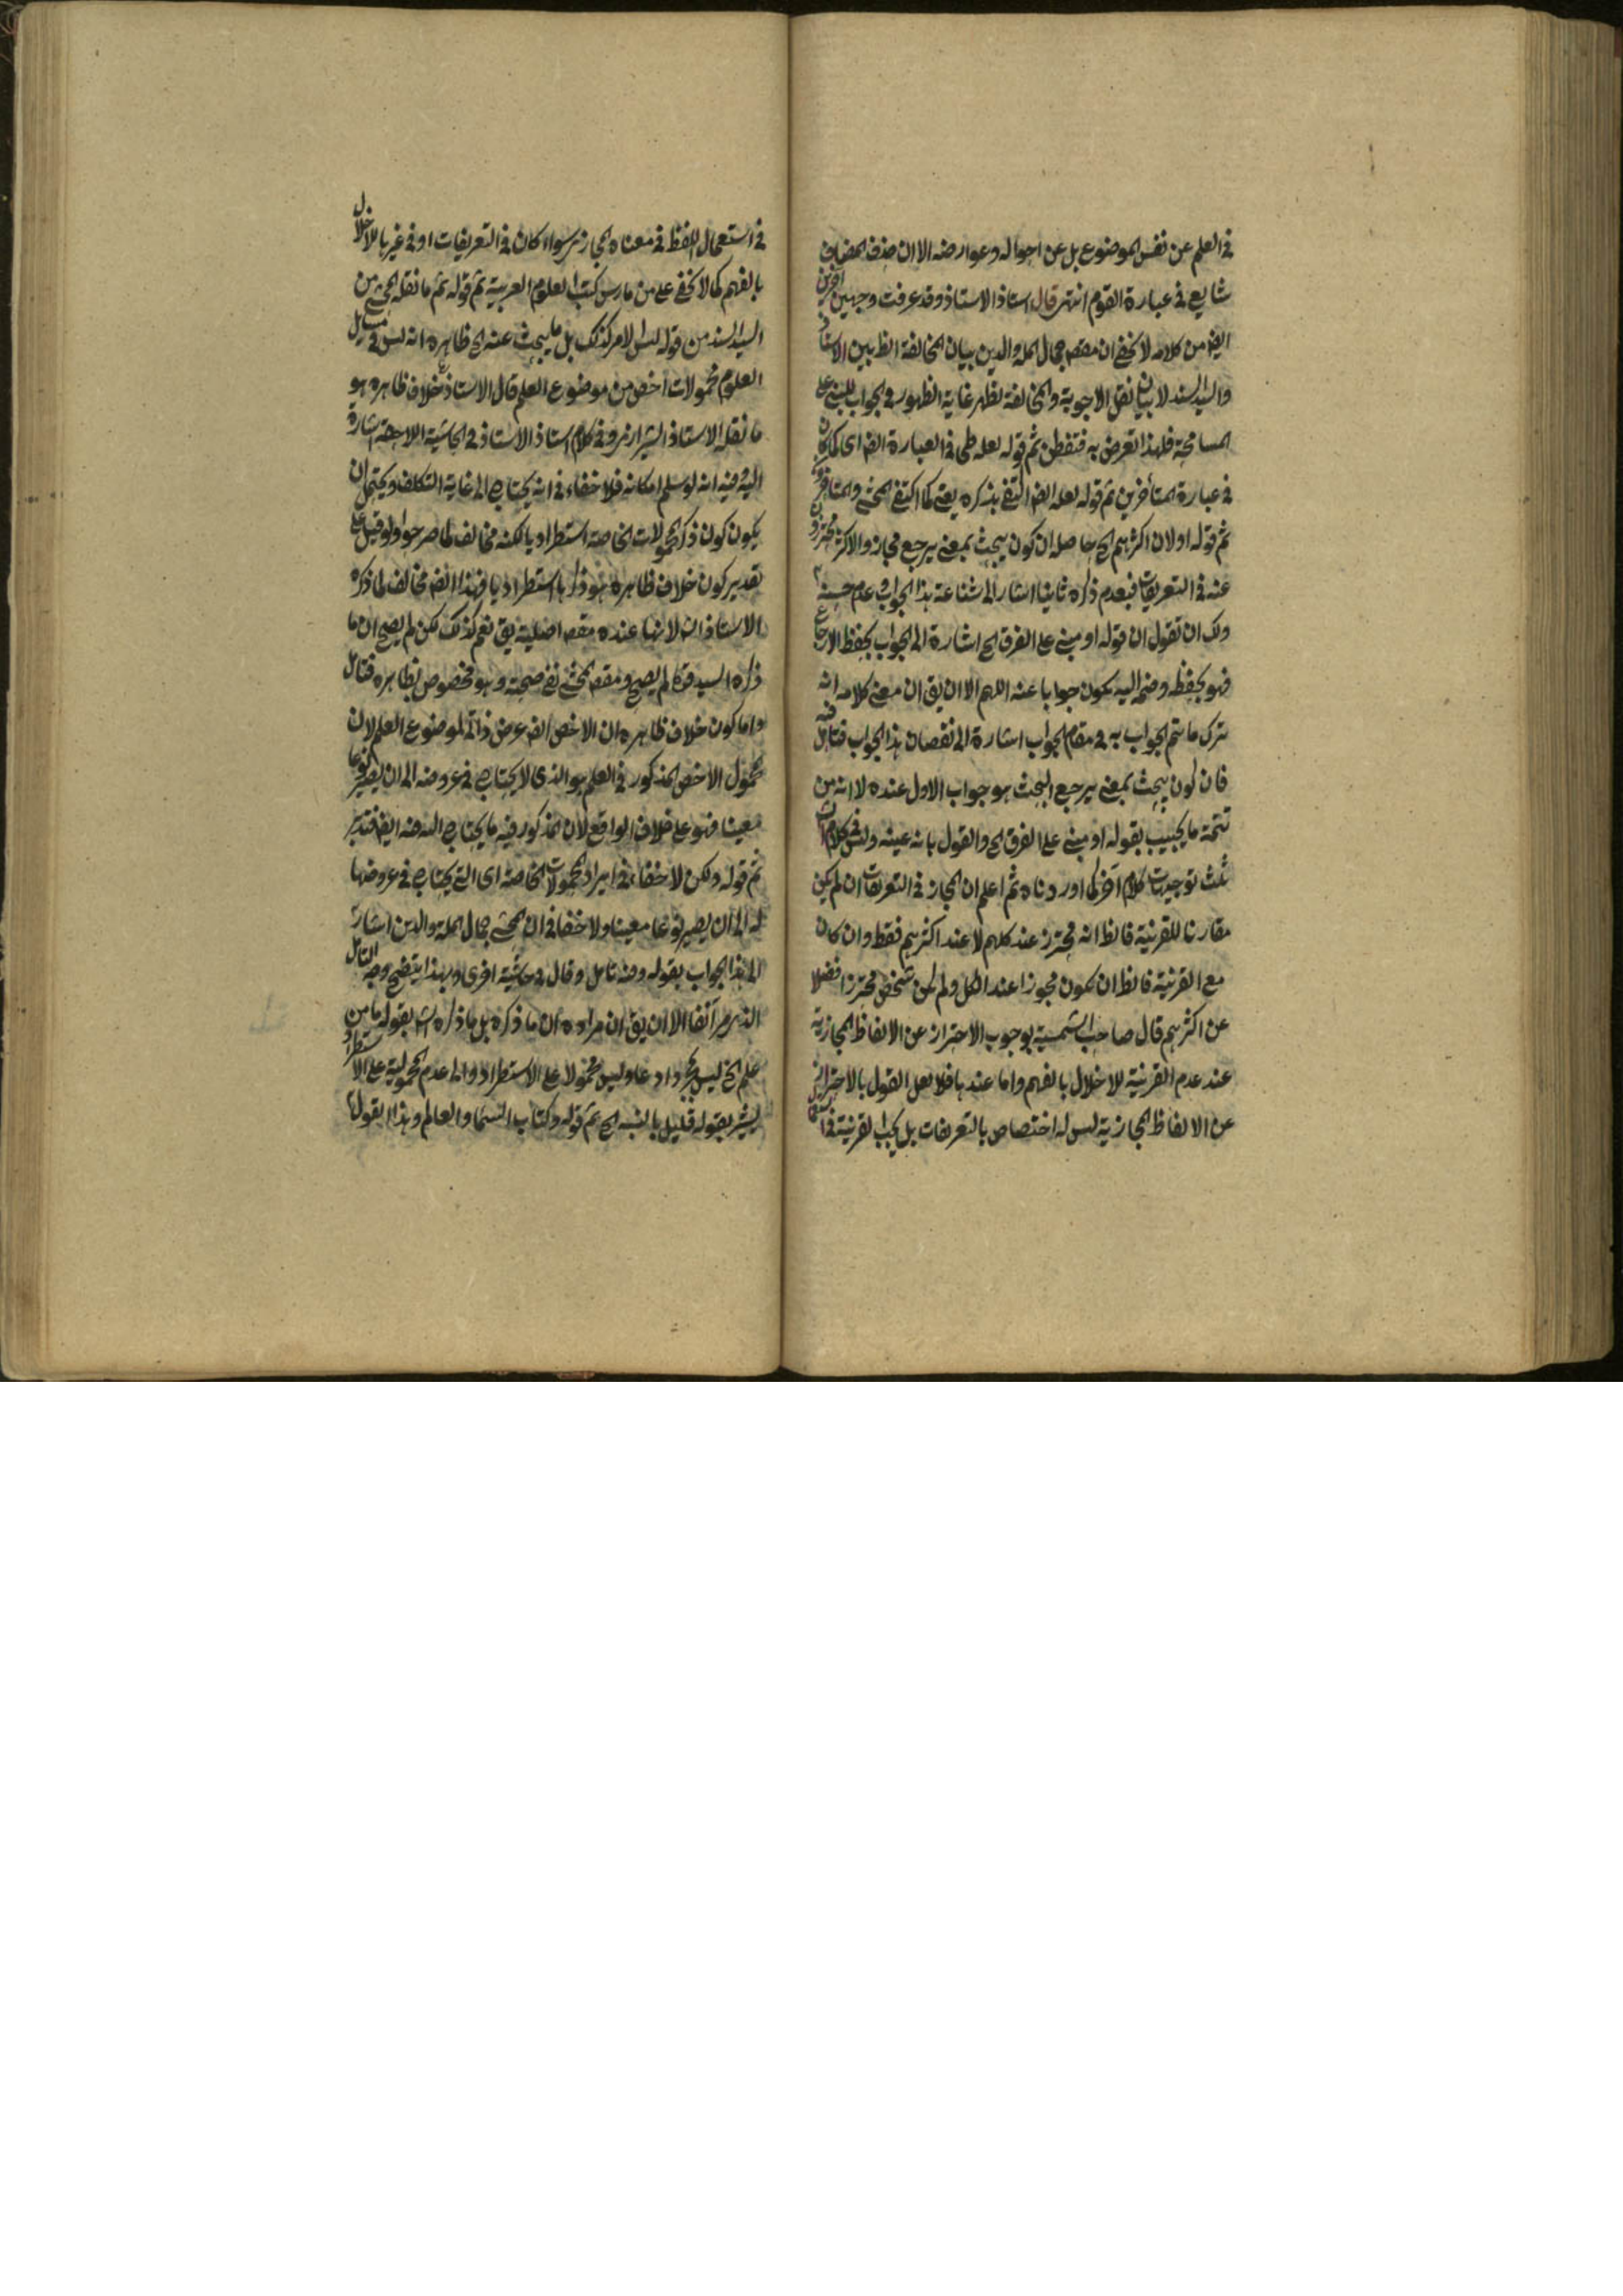 في العلم عن نفس الموضوع بل عن احواله وعوارضه الا ان حذف المضاف
شايع في عبارة القوم انتهى قال استاذ الاستاذ وقد عرفت وجهين آخرين
ايضا من كلامه لا يخفى ان مقصـ جمال المله والدين بيان المخالفة الظ بين الاستاذ
والسيد السند لا بيان نقل الاجوبة والمخالفة تظهر غاية الظهور في الجواب المبني على
المسامحة فلهذا تعرض به فتفطن ثم قوله لعله طى في العبارة ايضا اى كما كان
في عبارة المتأخرين ثم قوله لعله ايضا اكتفى بذكره يعنى كما اكتفى المحشى والمتاخرون
ثم قوله اولان اكثرهم الخ حاصله ان كون يبحث بمعنى يرجع مجاز والاكثر محترزون
عنه في التعريفات فبعدم ذكره ثانيا اشار الى شناعة هذا الجواب وعدم حسنه
ولك ان تقول ان قوله او مبنى على الفرق الخ اشارة الى الجواب بحفظ الارجاع
فهو بحفظه وضم اليه يكون جوابا عنه اللهم الا ان يق ان معنى كلامه انه
ترك ما يتم الجواب به في مقام الجواب اشارة الى نقصان هذا الجواب فتأمل فيه
فان كون يبحث بمعنى يرجع البحث هو جواب الاول عنده لا انه من
تتمة ما يجيب بقوله او مبنى على الفرق الخ والقول بانه عينه وليس في كلام
ثلث توجيهات كلام آخر كما اوردناه ثم اعلم ان المجاز في التعريفات ان لم يكن
مقارنا للقرنية فالظ انه محترز عند كلهم لا عند اكثرهم فقط وان كان
مع القرنية فالظ ان يكون مجوزا عند الكل ولم يكن شخص محترزا فضلا
عن اكثرهم قال صاحب الشمسية بوجوب الاحتراز عن الالفاظ المجازية
عند عدم القرنية للاخلال بالفهم واما عندها فلا لعل القول بالاحتراز
عن الالفاظ المجازية ليس له اختصاص بالتعريفات بل يجب القرنية
في استعمال اللفظ في معناه المجازى سواء كان في التعريفات او في غيرها للاخلال
بالفهم كما لا يخفى على من مارس كتب العلوم العربية ثم قوله ثم ما نقله المحشى من
السيد السند من قوله ليس الامر كذلك بل ما يبحث عنه الخ ظاهره انه ليس في مسايل
العلوم محمولات اخص من موضوع العلم قال الاستاذ خلاف ظاهره هو
ما نقله الاستاذ الشيرازى وفي كلام استاذ الاستاذ في الحاشية اللاحقة اشارة
اليه وفيه انه لو سلم امكانه فلا خفاء في انه يحتاج الى غاية التكلف ويحتمل ان
يكون كون ذكر المحمولات الخاصة استطراديا لكنه مخالف لما صرحوا ولو قيل على
تقدير كون خلاف ظاهره هو ذكرها استطراديا فهذا ايضا مخالف لما ذكره
الاستاذ لانها عنده مقصـ اصلية يق نعم كذلك لكن لم يصح ان ما
ذكره السيد لم يصح ومقصـ المحشى نفى صحته وهو مخصوص بظاهره فتأمل
واما كون خلاف ظاهره ان الاخص ايضا عرض ذاتى لموضوع العلم لان
محمول الاخص المذكور في العلم هو الذى لا يحتاج في عروضه الى ان يصير نوعا
معينا فهو على خلاف الواقع لان المذكور فيه ما يحتاج اليه ايضا فتدبر
ثم قوله ولكن لا خفاء في ايراد المحمولات الخاصة اى التى يحتاج في عروضها
له الى ان يصير نوعا معينا ولا خفا في ان المحشى جمال المله والدين اشار
الى هذا الجواب بقوله وفيه تامل وقال في حاشية اخرى وبهذا يتضح وجه التأمل
الذى مر آنفا الا ان يق ان مراده ان ما ذكره بل ما ذكره بقوله ما من
علم الخ ليس مجرد ادعا وليس محمولا على الاستطراد والى عدم المحمولية على الاستطراد
يشير بقوله قليل بالنسبه الخ ثم قوله وكتاب السما والعالم وهذا القول